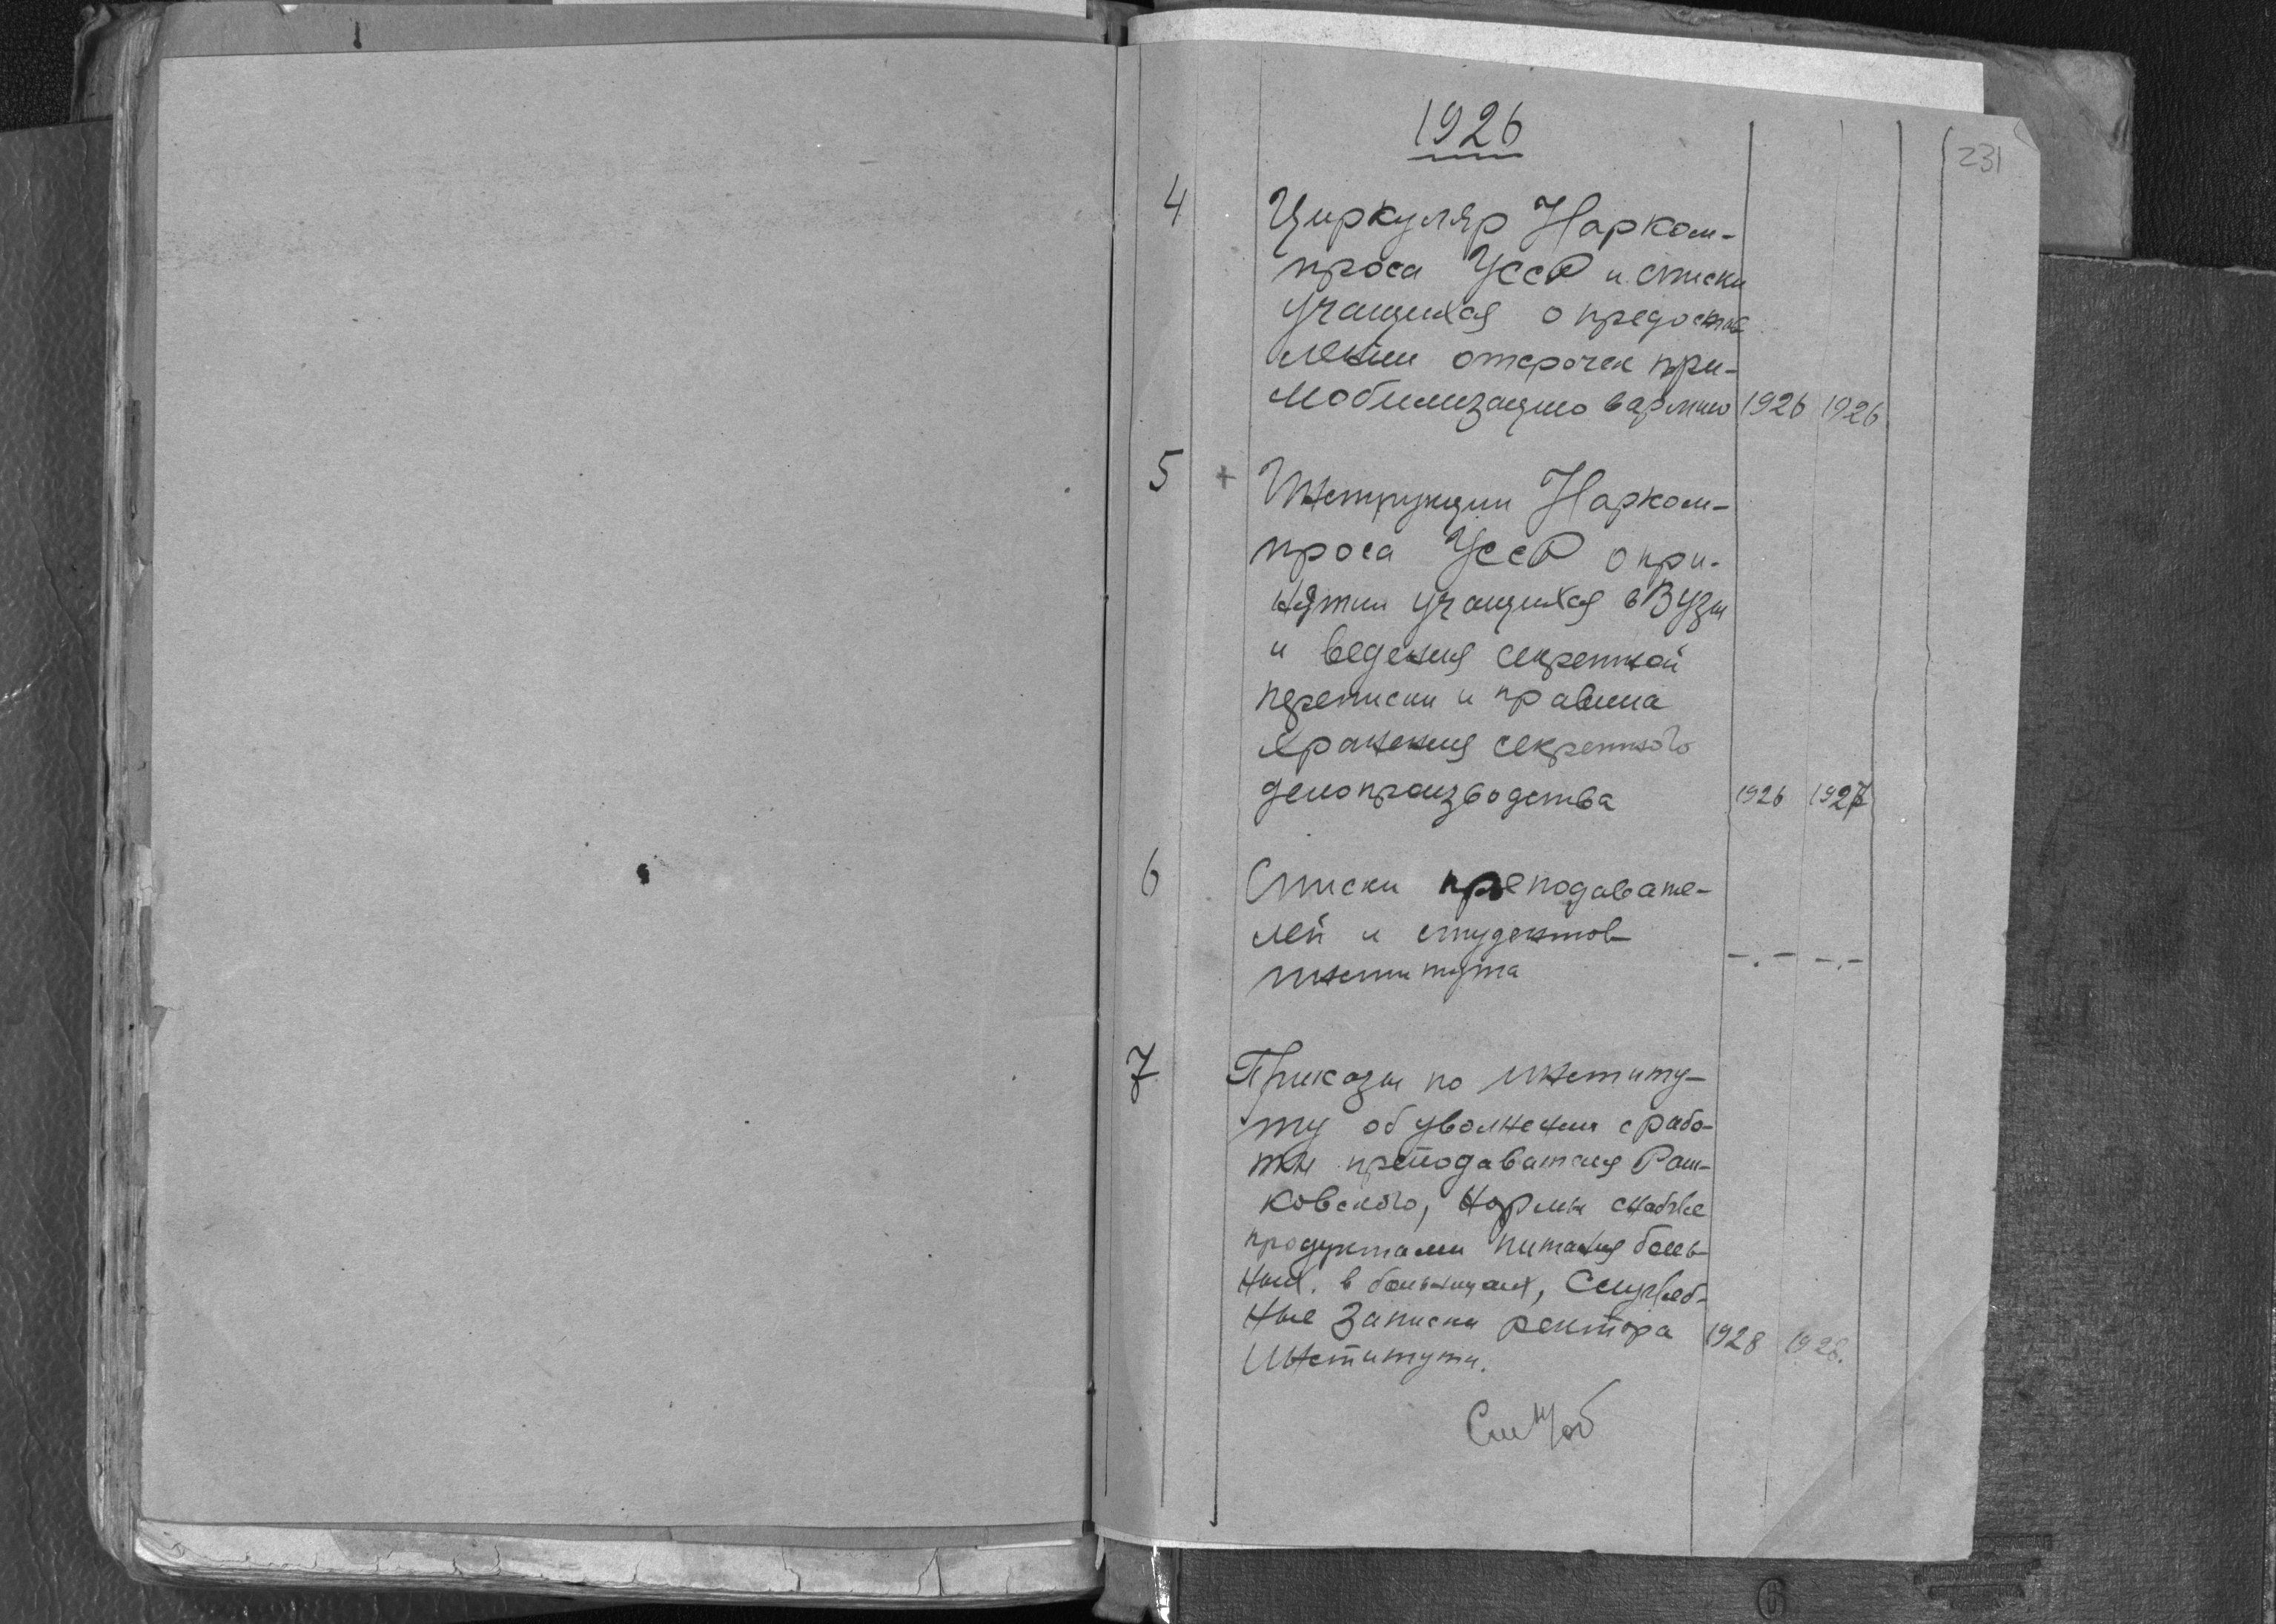 231
1926
4 Циркуляр Нарком-
проса УССР и списки
учащихся о предостав
лении отсрочек при-
мобилизацию в армию 1926 1926
5 + Инструкции Нарком-
проса УССР о при-
нятии учащихся в Вузы
и ведения секретной
переписки и правила
хранения секретного
делопроизводства 1926 1927
6 Списки преподавате-
лей и студентов
института -.- -.-
7 Приказы по институ-
ту об уволнении с рабо-
ты преподавателя Раш-
ковского, нормы снабже
продуктами питания боль-
ных в больницах, Служеб-
ные записки ректора 1928 1928.
Института.
6